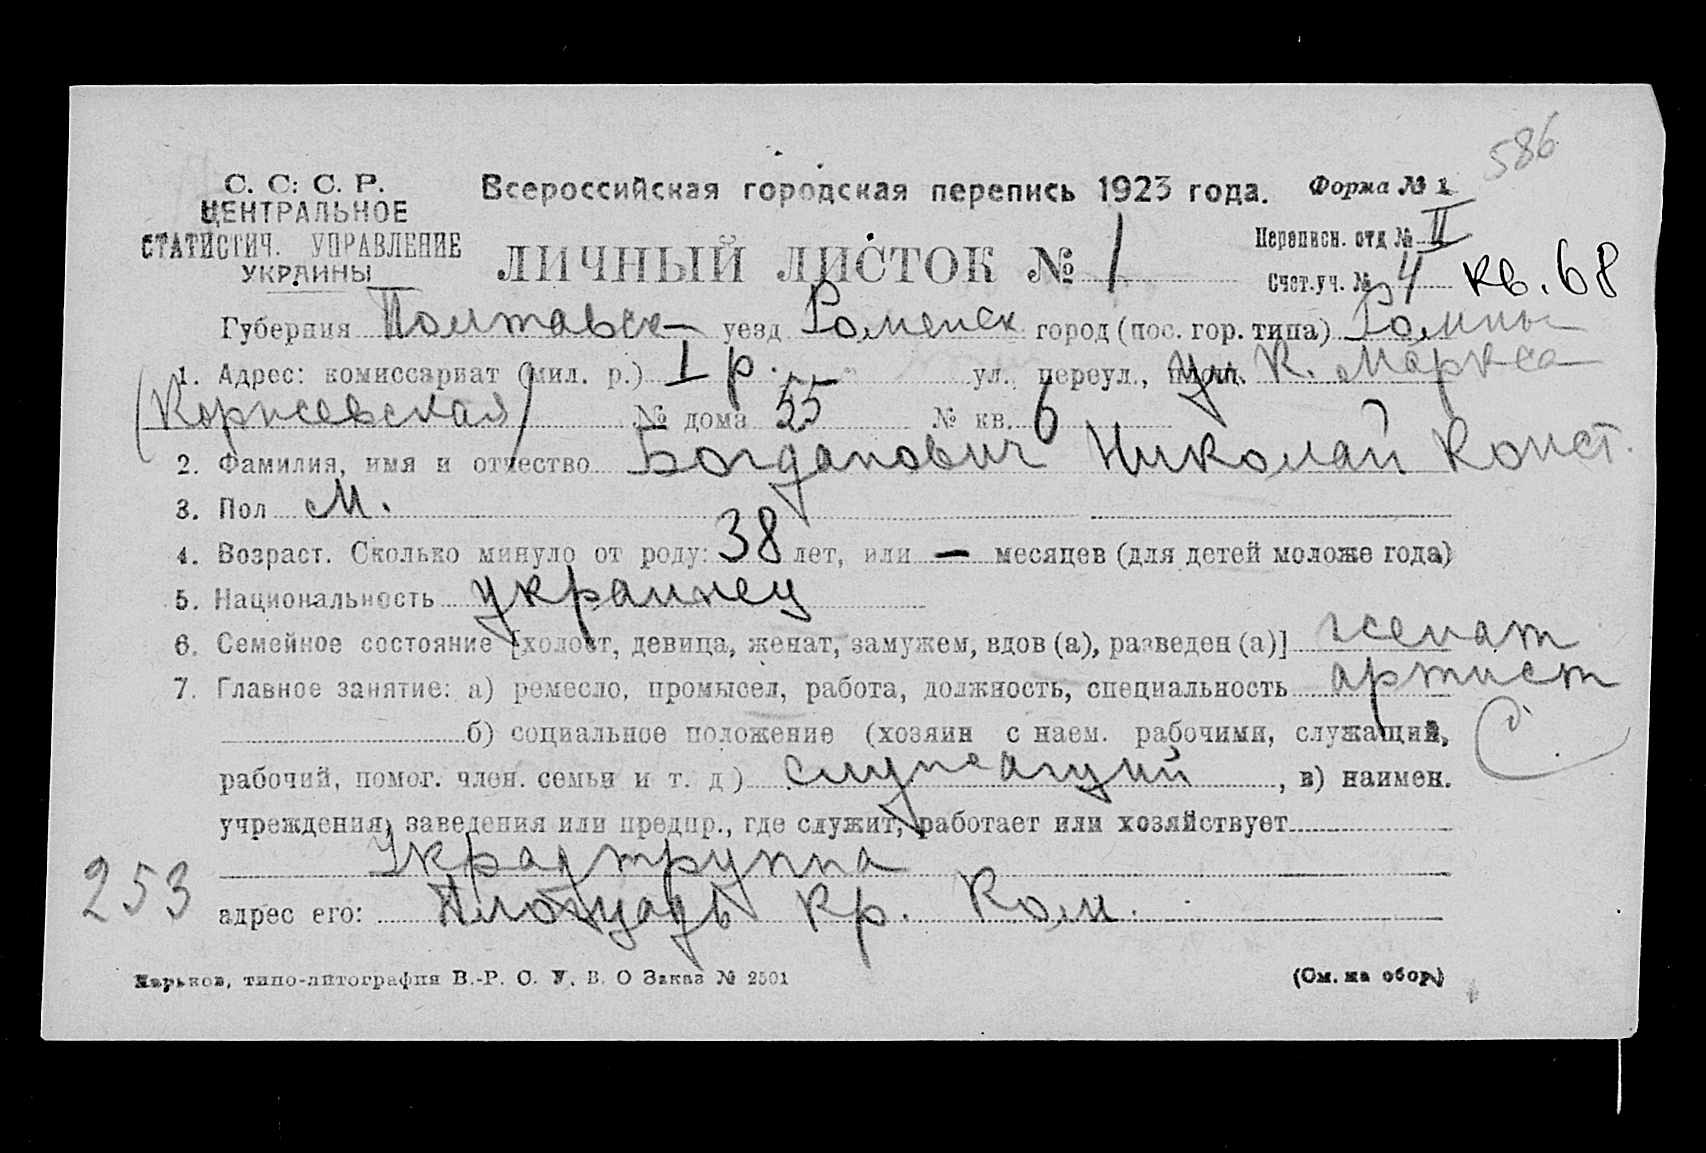 586
С. С. С. Р.
ЦЕНТРАЛЬНОЕ
СТАТИСТИЧ. УПРАВЛЕНИЕ
УКРАИНЫ
Всероссийская городская перепись 1923 года. Форма № 1
ЛИЧНЫЙ ЛИСТОК № 1
Переписн. отд № II
Счет.уч. № 4 кв. 68
Губерния Полтавск уезд Роменск город (пос. гор. типа) Ромны
1. Адрес: комиссариат (мил. р.) I р. ул., переул., площ. ул. К. Маркса
№ дома 55 № кв. 6
2. Фамилия, имя и отчество Богданович Николай Конст.
3. Пол м.
4. Возраст. Сколько минуло от роду: 38 лет, или — месяцев (для детей моложе года)
5. Национальность украинец
6. Семейное состояние [холост, девица, женат, замужем, вдов (а), разведен (а)] женат
7. Главное занятие: а) ремесло, промысел, работа, должность, специальность артист
б) социальное положение (хозяин с наем. рабочими, служащий,
рабочий, помог. член. семьи и т. д) служащий, в) наимен.
учреждения, заведения или предпр., где служит, работает или хозяйствует
253
адрес его: Площадь Кр. Ком.
Харьков, типо-литография В.-Р. О. У. В. О Заказ № 2501
(См. на обор.)